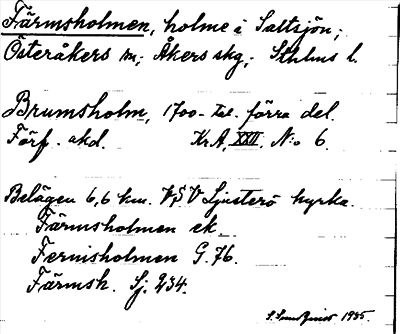 Färmsholmen, holme i Saltsjön;
Österåkers sn; Åkers skg; Sthlms l.
Brumsholm, 1700-tal. förra del.
Förf. okd. KrA, XXII, N:o 6.
Belägen 6,6 km. VSV Ljusterö kyrka.
Färmsholmen ek.
Fermsholmen G. 76.
Färmsh. Sj. 234.
S. Sundquist 1935.